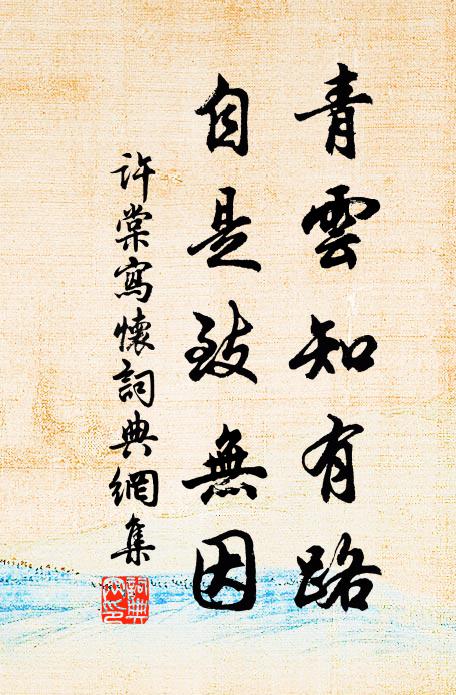 青雲知有路
自是致無因
許棠寫懷詞典網集